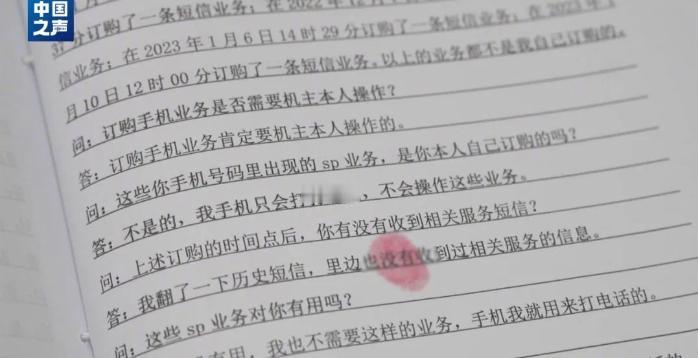 中国
之声
37 分订购了一条短信业务；在 2022 年 12 月
信业务；在 2023 年 1 月 6 日 14 时 29 分订购了一条短信业务
月 10 日 12 时 00 分订购了一条短信业务。以上的业务都不是我自己订购的。
问：订购手机业务是否需要机主本人操作？
答：订购手机业务肯定要机主本人操作的。
问：这些你手机号码里出现的 sp 业务，是你本人自己订购的吗？
答：不是的，我手机只会打，不会操作这些业务。
问：上述订购的时间点后，你有没有收到相关服务短信？
答：我翻了一下历史短信，里边也没有收到过相关服务的信息。
问：这些 sp 业务对你有用吗？
有用，我也不需要这样的业务，手机我就用来打电话的。